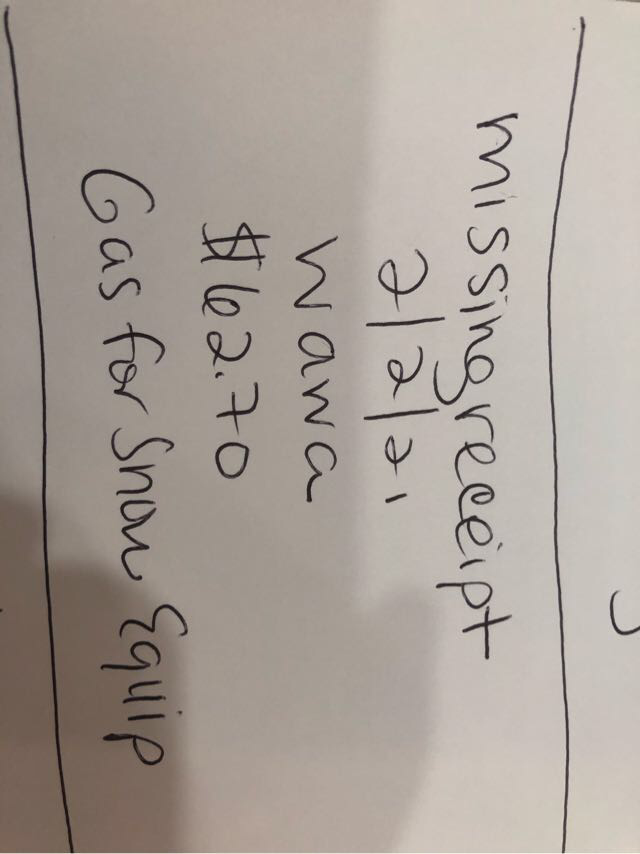 missing receipt
2/2/21
Wawa
$62.70
Gas for Snow Equip